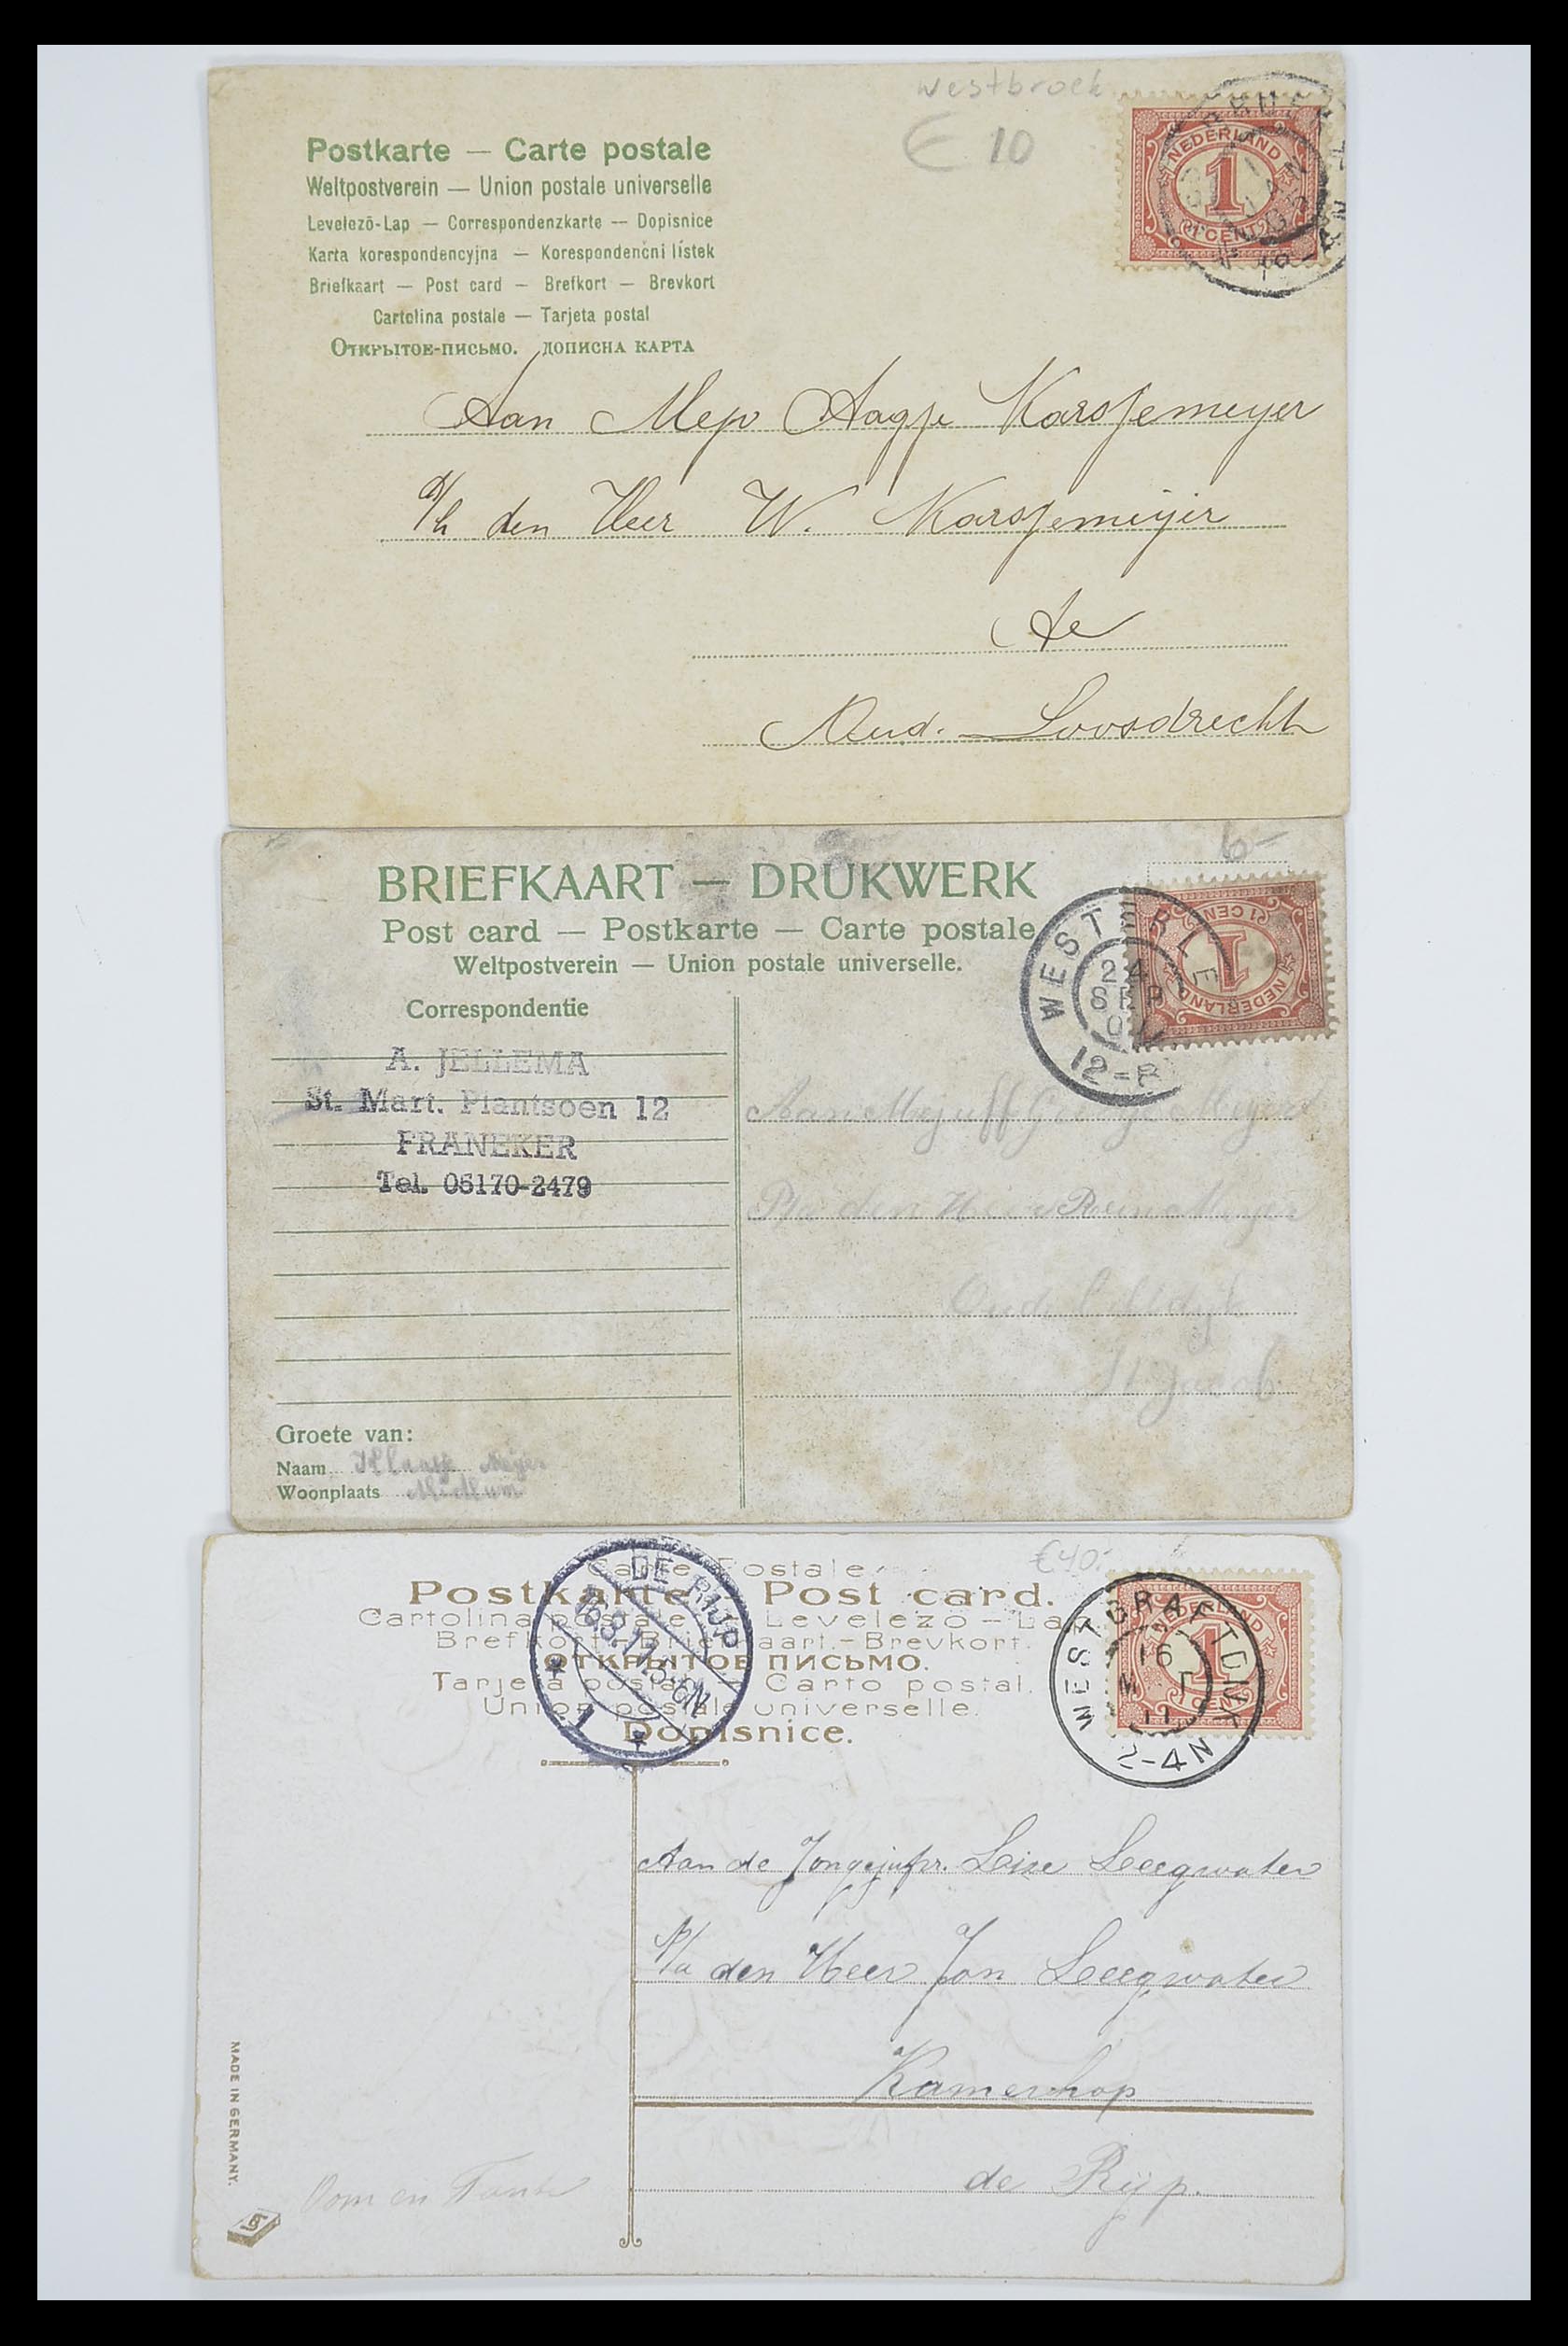 westbroek
€ 10
Postkarte — Carte postale
Weltpostverein — Union postale universelle
Levelező-Lap — Correspondenzkarte — Dopisnice
Karta korespondencyjna — Korespondenční lístek
Briefkaart — Post card — Brefkort — Brevkort
Cartolina postale — Tarjeta postal
Открытое-письмо. дописна карта
NEDERLAND
1
1 CENT
Aan Mej Aagje Karssemeyer
den Heer W. Karssemeijer
te
Oud. Loosdrecht
6-
BRIEFKAART — DRUKWERK
Post card — Postkarte — Carte postale
Weltpostverein — Union postale universelle.
Correspondentie
WEST
24
SEP
12-
NEDERLAND
1
1 CENT
A. JELLEMA
St. Mart. Plantsoen 12
FRANEKER
Tel. 05170-2479
Aan Mejuff Meijer
P/a den Heer Rein Meijer
Oude Bildtdijk
St Jacob
Groete van:
Naam Klaasje Meijer
Woonplaats Midlum
€40:-
Carte Postale
Postkarte Post card.
Cartolina postale Levelező-Lap
Brefkort-Briefkaart.-Brevkort.
ОТКРЫТОЕ ПИСЬМО.
Tarjeta postal - Carto postal.
Union postale universelle.
Dopisnice.
DE RIJP
16.3.11.5-6N
1
NEDERLAND
1
1 CENT
WESTGRAFTDIJK
16
MRT
11
2-4N
Aan de Jongejufr. Leegwater
P/a den Heer Jan Leegwater
Kamerhop
de Rijp.
Oom en Tante
MADE IN GERMANY.